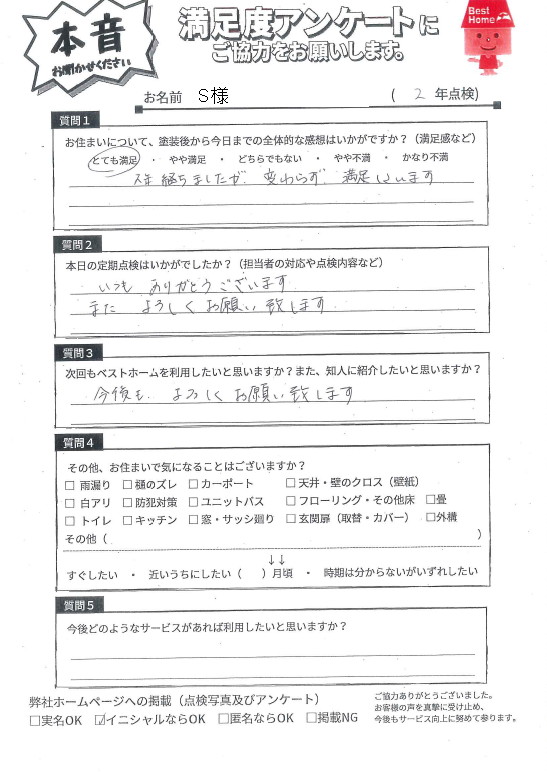 本音
お聞かせください
満足度アンケートに
ご協力をお願いします。
Best Home
お名前 S様 ( 2 年点検)
質問1
お住まいについて、塗装後から今日までの全体的な感想はいかがですか?(満足感など)
とても満足 ・ やや満足 ・ どちらでもない ・ やや不満 ・ かなり不満
経ちましたが、変わらず 満足しています
質問2
本日の定期点検はいかがでしたか?(担当者の対応や点検内容など)
いつも ありがとうございます
また よろしくお願い致します
質問3
次回もベストホームを利用したいと思いますか?また、知人に紹介したいと思いますか?
今後も よろしくお願い致します
質問4
その他、お住まいで気になることはございますか?
□ 雨漏り □ 樋のズレ □ カーポート □ 天井・壁のクロス(壁紙)
□ 白アリ □ 防犯対策 □ ユニットバス □ フローリング・その他床 □畳
□ トイレ □ キッチン □ 窓・サッシ廻り □ 玄関扉(取替・カバー) □外構
その他( )
↓↓
すぐしたい ・ 近いうちにしたい( )月頃 ・ 時期は分からないがいずれしたい
質問5
今後どのようなサービスがあれば利用したいと思いますか?
弊社ホームページへの掲載(点検写真及びアンケート)
□実名OK ☑イニシャルならOK □匿名ならOK □掲載NG
ご協力ありがとうございました。
お客様の声を真摯に受け止め、
今後もサービス向上に努めて参ります。